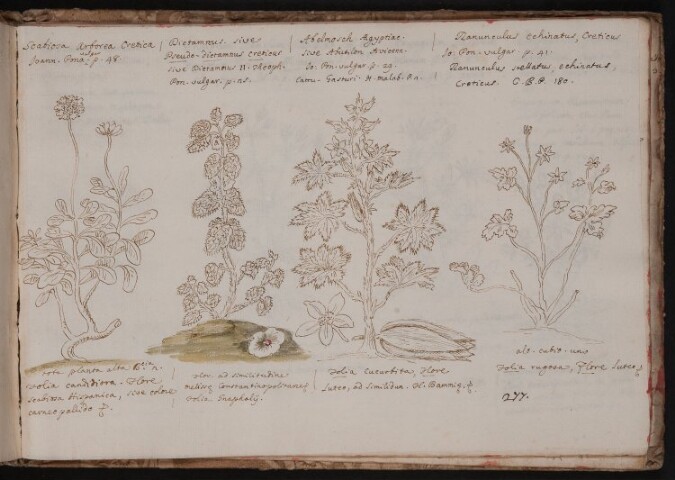 Scabiosa Arborea Cretica
Joann. Pona, p. 48.
Dictamnus sive
Pseudo-dictamnus creticus
sive Dictamnus II. Theoph.
Pon. vulgar. p. 25.
Abelmosch Ægyptiac.
sive Abutilon Avicenn.
Jo. Pon. vulgar. p. 29.
H. malab.
Ranunculus echinatus, Creticus
Jo. Pon. vulgar. p. 41.
Ranunculus stellatus, echinatus,
Creticus. C.B.P. 180.
tota planta alta
Folia candidiora. Flore
Scabiosa Hispanica, sive colore
carneo pallido
flore ad similitudine
Constantinopolitanus
Folia Gnaphalij.
Folia Cucurbita, Flore
luteo, ad similitudin.
alt. cubit. un.
Folia rugosa, Flore luteo
277.